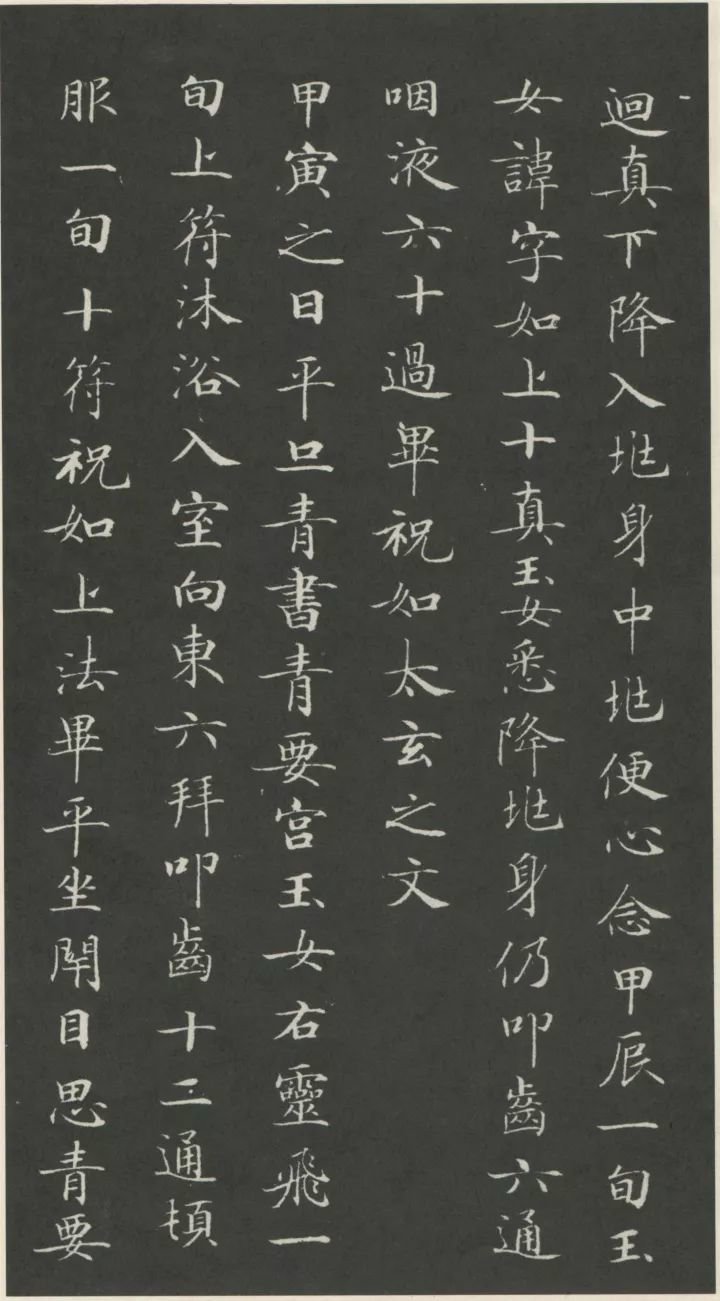 迴真下降入㘴身中㘴便心念甲辰一旬玉
女諱字如上十真玉女悉降㘴身仍叩齒六通
咽液六十過畢祝如太玄之文
甲寅之日平旦青書青要宮玉女右靈飛一
旬上符沐浴入室向東六拜叩齒十二通頓
服一旬十符祝如上法畢平坐閇目思青要